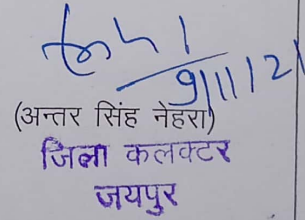 9/11/21
(अन्तर सिंह नेहरा)
जिला कलक्टर
जयपुर